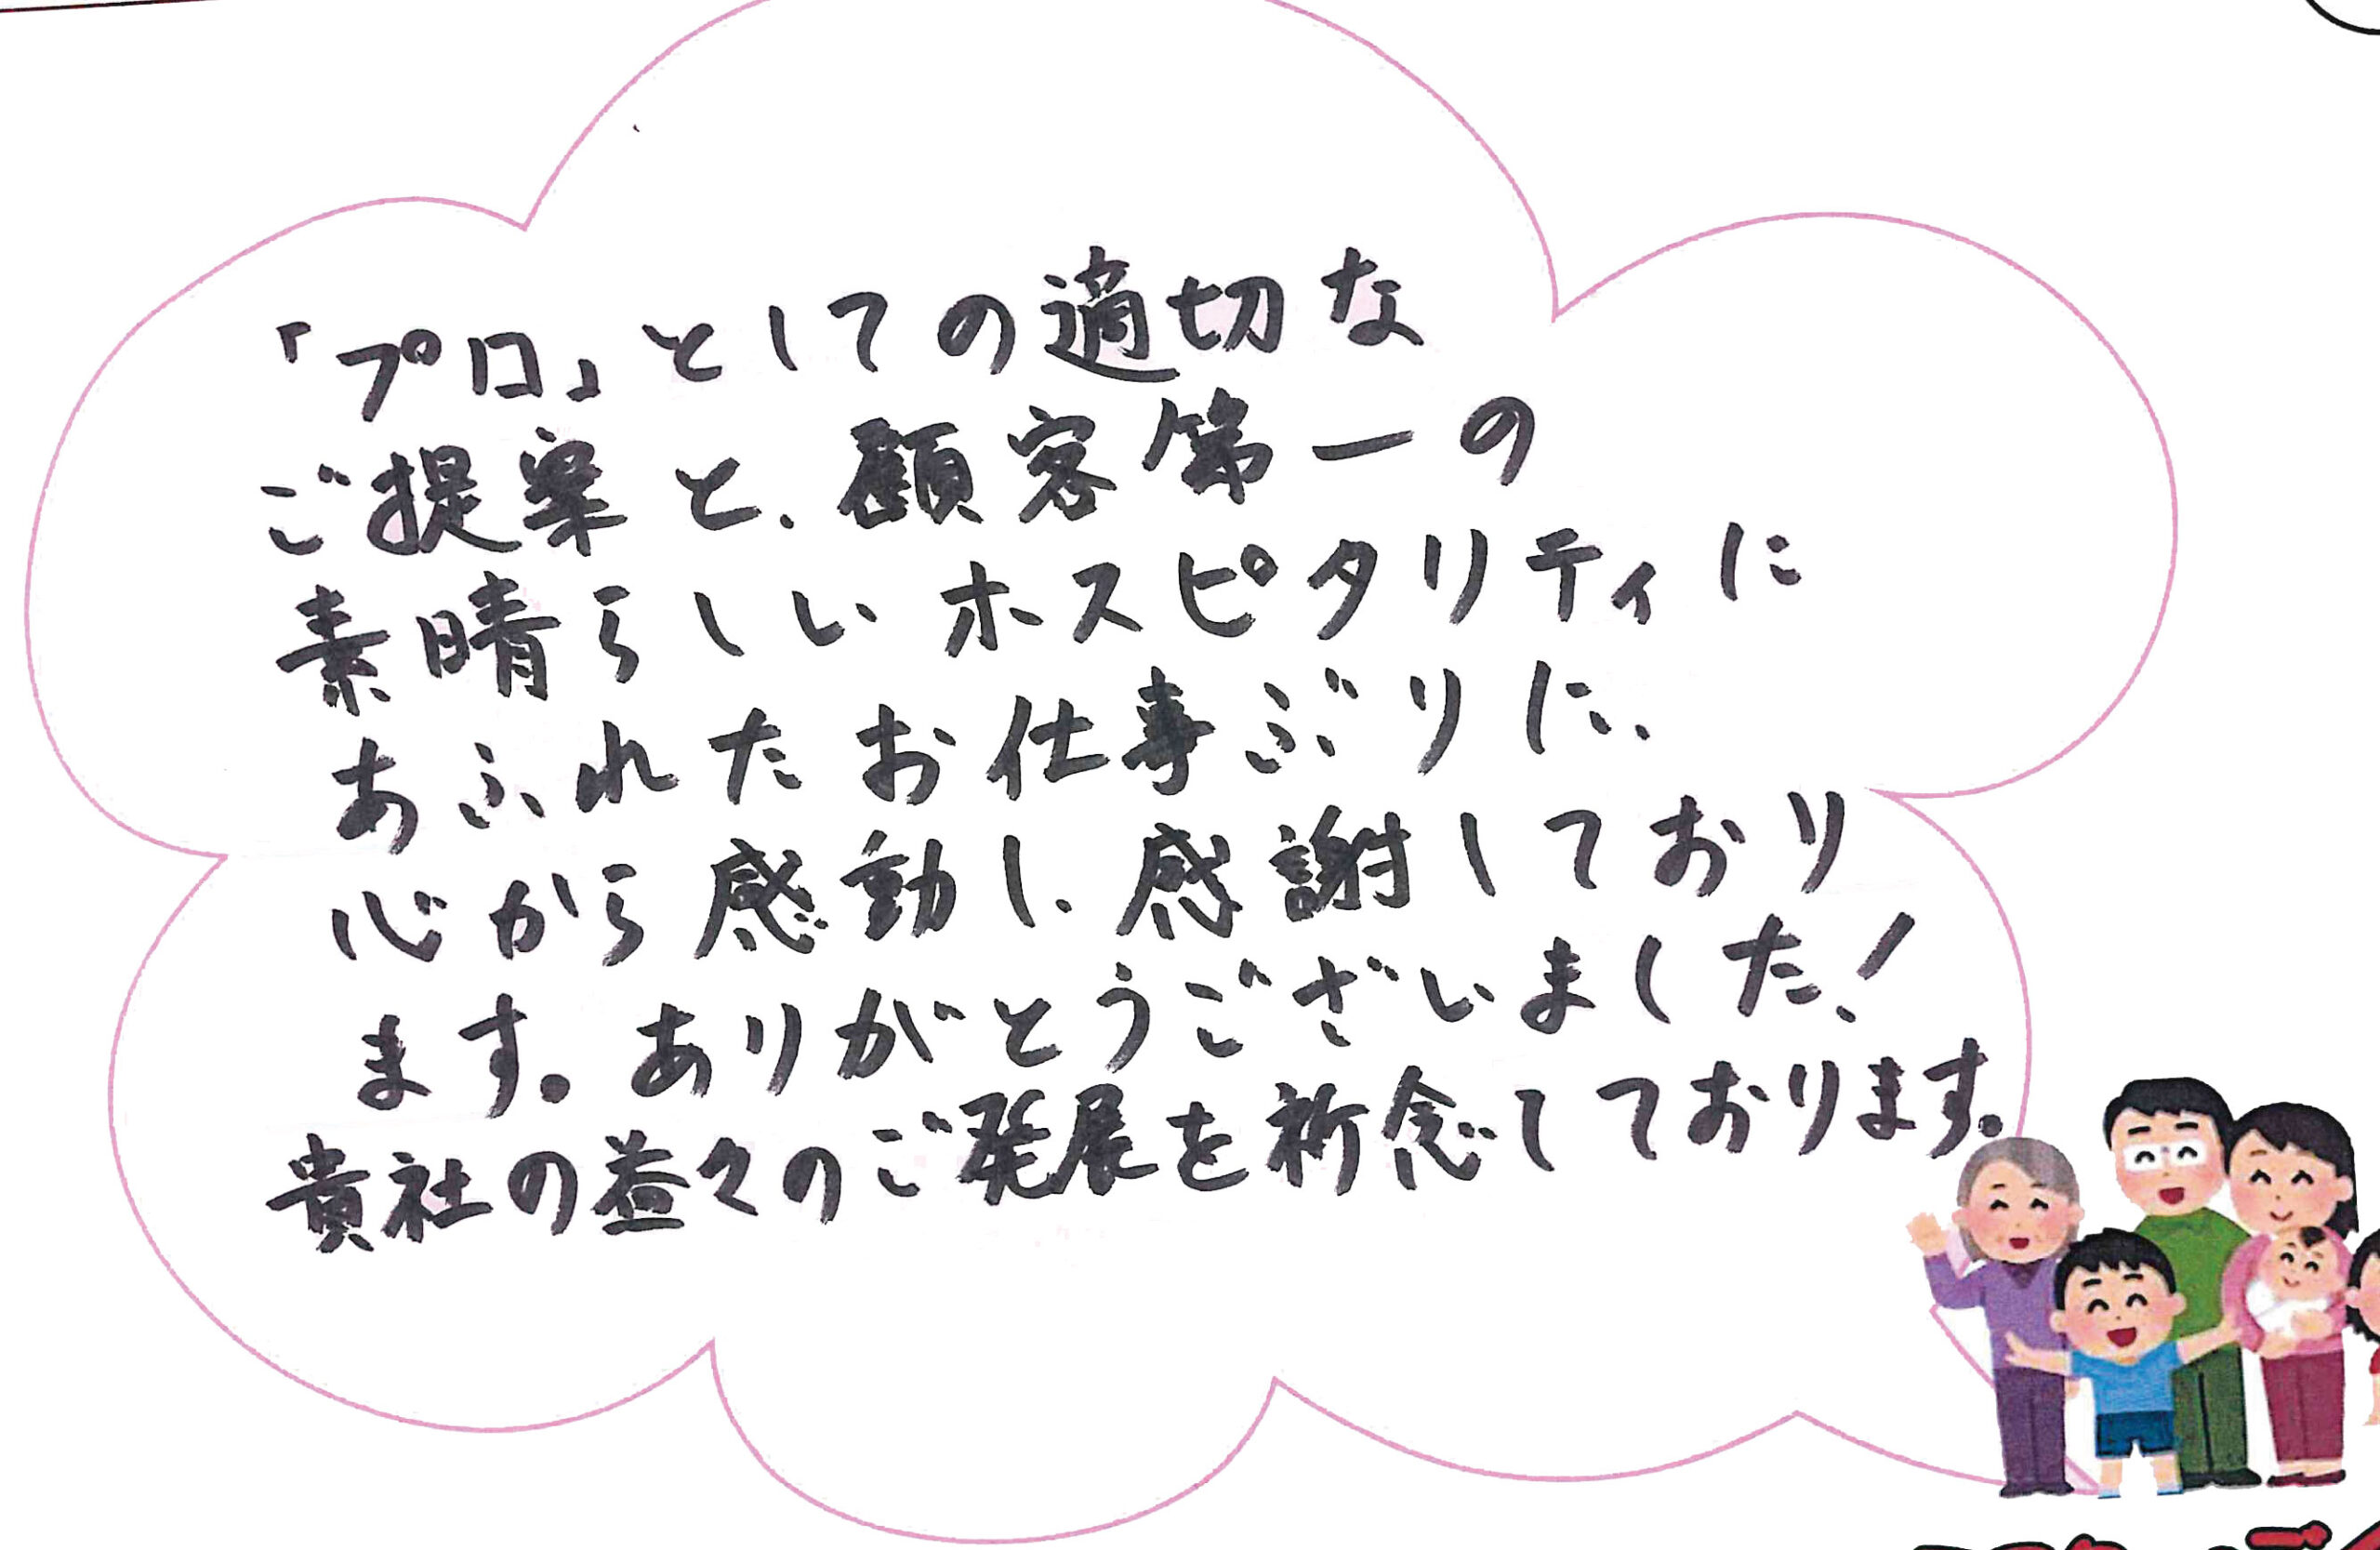 「プロ」としての適切な
ご提案と、顧客第一の
素晴らしいホスピタリティに
あふれたお仕事ぶりに、
心から感動し、感謝しており
ます。ありがとうございました！
貴社の益々のご発展を祈念しております。